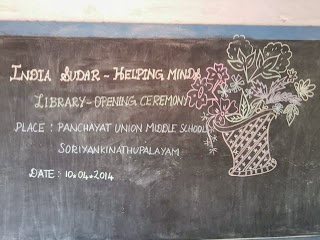 INDIA SUDAR - HELPING MINDS
LIBRARY - OPENING CEREMONY
PLACE : PANCHAYAT UNION MIDDLE SCHOOL
SORIYANKINATHUPALAYAM
DATE : 10.04.2014